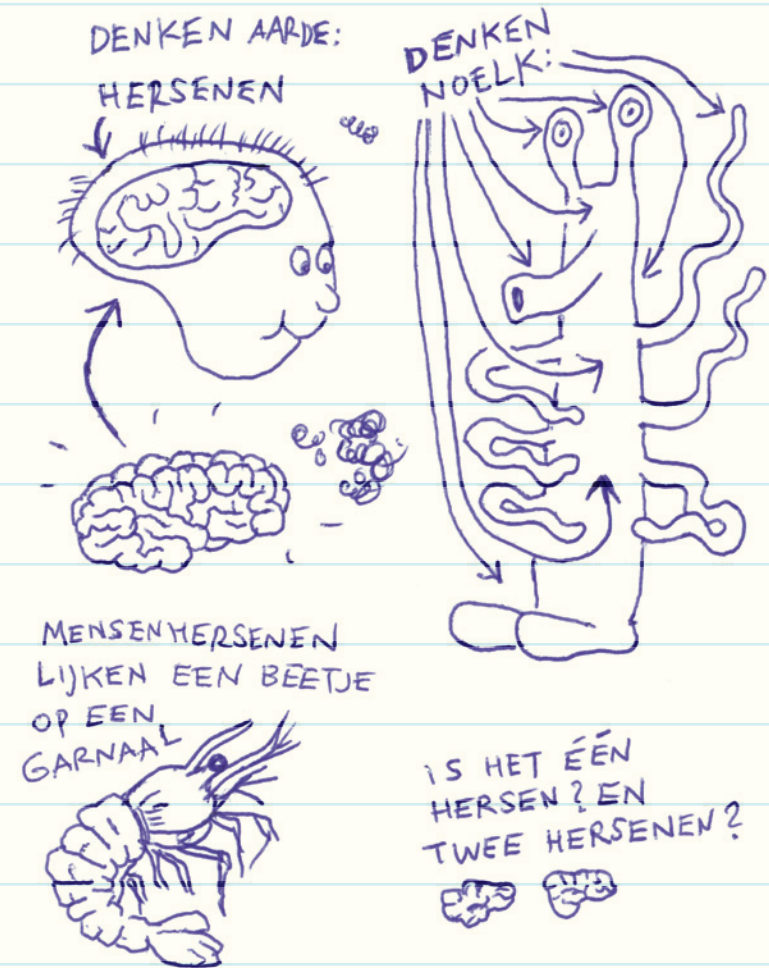 DENKEN AARDE:
HERSENEN
DENKEN
NOELK:
MENSENHERSENEN
LIJKEN EEN BEETJE
OP EEN
GARNAAL
iS HET ÉÉN
HERSEN? EN
TWEE HERSENEN?